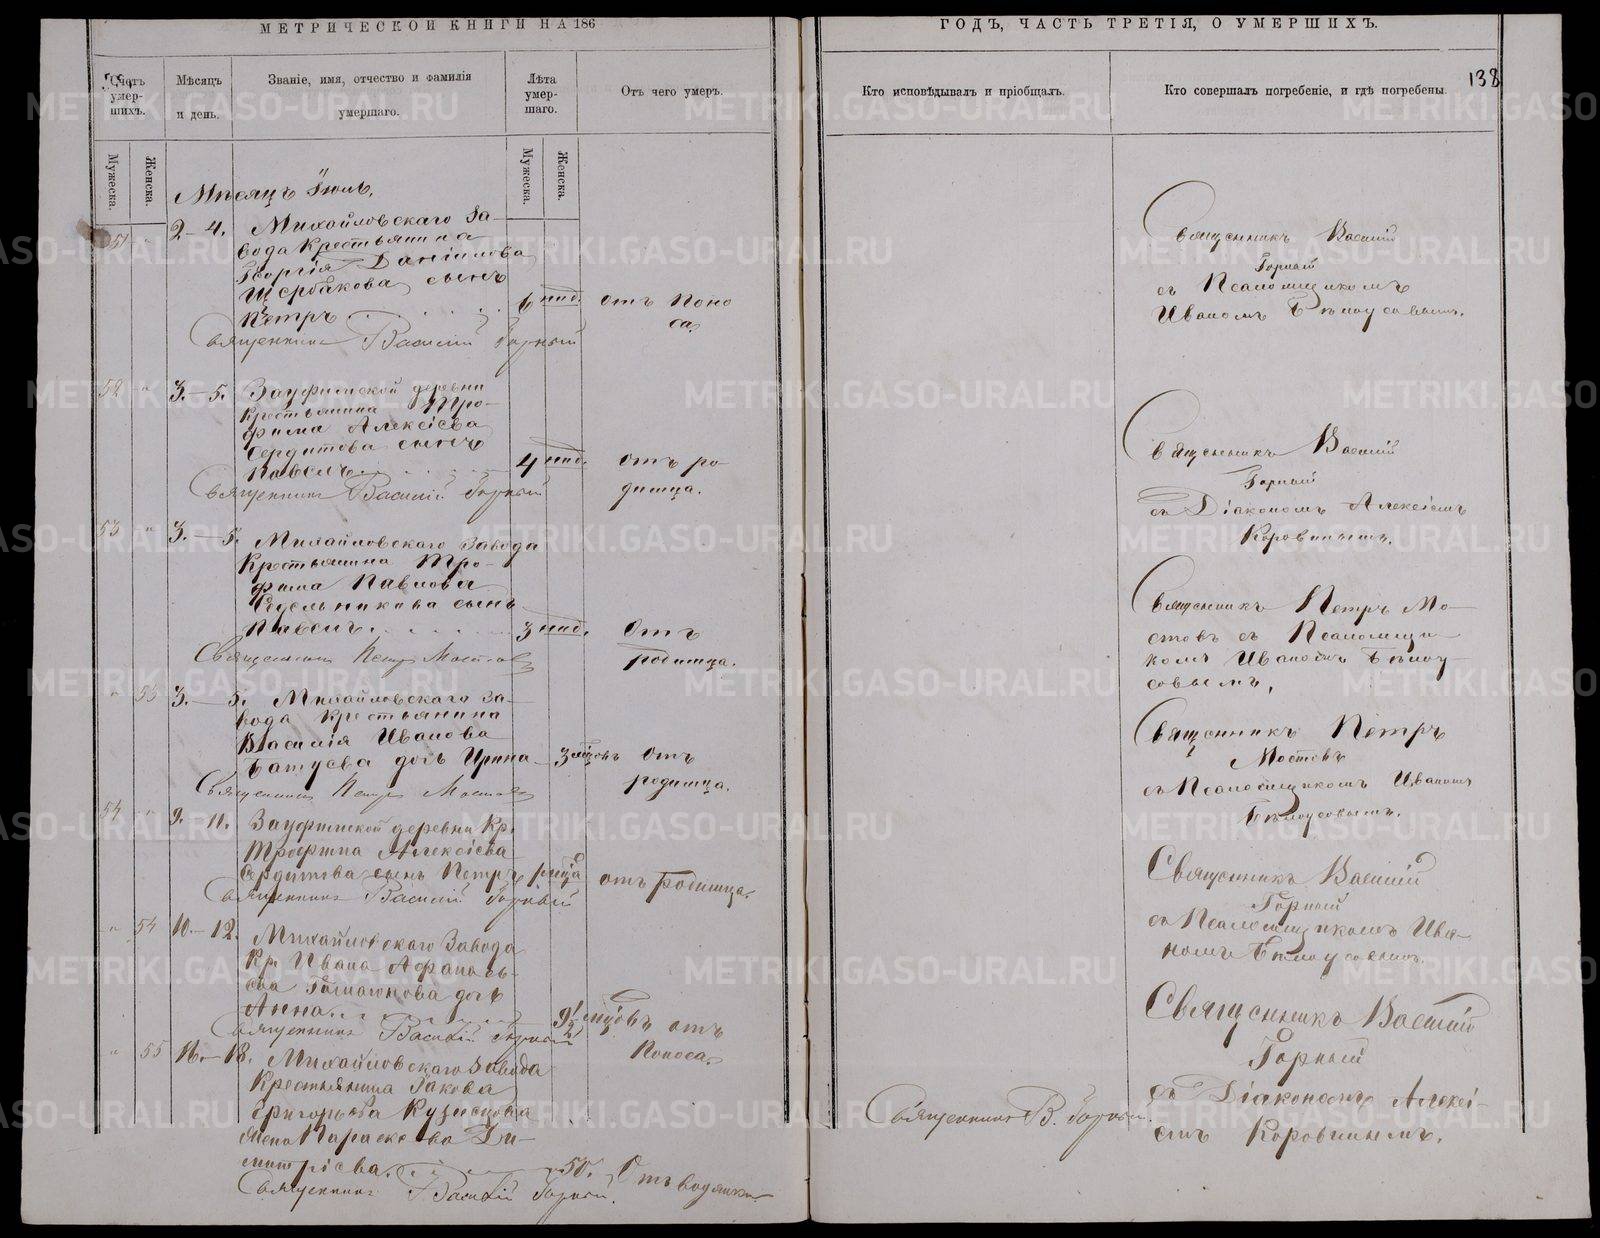 МЕТРИЧЕСКОЙ КНИГИ НА 186
ГОДЪ, ЧАСТЬ ТРЕТІЯ, О УМЕРШИХЪ.
138
Счетъ умер-шихъ.
Мужеска.
Женска.
Мѣсяцъ и день.
Званіе, имя, отчество и фамилія умершаго.
Лѣта умер-шаго.
Мужеска.
Женска.
Отъ чего умеръ.
Кто исповѣдывалъ и пріобщалъ.
Кто совершалъ погребеніе, и гдѣ погребены.
Мѣсяцъ Іюль.
51 " 2–4. Михайловскаго За-
вода Крестьянина
Георгія Даніилова
Щербакова сынъ
Петръ 6 нед. отъ поно
са.
Священникъ Василій Горный
Священникъ Василій
Горный
съ Псаломщикомъ
Иваномъ Бѣлоусовымъ.
52 " 3.–5. Зауфимской деревни
Крестьянина Тро-
фима Алексіева
Сердитова сынъ
Павелъ 4 нед. отъ ро
димца.
Священникъ Василій Горный
Священникъ Василій
Горный
съ Діакономъ Алексіемъ
Коровинымъ.
53 " 3.–5. Михайловскаго Завода
Крестьянина Тро-
фима Павлова
Седельникова сынъ
Павелъ. 3 нед. Отъ
родимца.
Священникъ Петръ Мостовъ
Священникъ Петръ Мо-
стовъ съ Псаломщи-
комъ Иваномъ Бѣлоу-
совымъ.
" 53 3.–5. Михайловскаго За-
вода Крестьянина
Василія Иванова
Батуева дочь Ирина 3 мѣсяцовъ Отъ
родимца.
Священникъ Петръ Мостовъ
Священникъ Петръ
Мостовъ
съ Псаломщикомъ Иваномъ
Бѣлоусовымъ.
54 " 9. 11. Зауфимской деревни Кр.
Трофима Алексіева
Сердитова сынъ Петръ
отъ родимца.
Священникъ Василій Горный
Священникъ Василій
Горный
съ Псаломщикомъ Ива-
номъ Бѣлоусовымъ.
" 54 10–12. Михайловскаго Завода
Кр. Ивана Афанась-
ева дочь
Анна. 9½ мѣсяцовъ отъ
Поноса.
Священникъ Василій Горный
Священникъ Василій
Горный
съ Діакономъ Алексі-
емъ Коровинымъ.
" 55 16.–18. Михайловскаго Завода
Крестьянина Іакова
Григорьева Кузнецова
жена Параскева Ди-
митріева. 50. Отъ водянки.
Священникъ Василій Горный.
Священникъ В. Горный.
METRIKI.GASO-URAL.RU